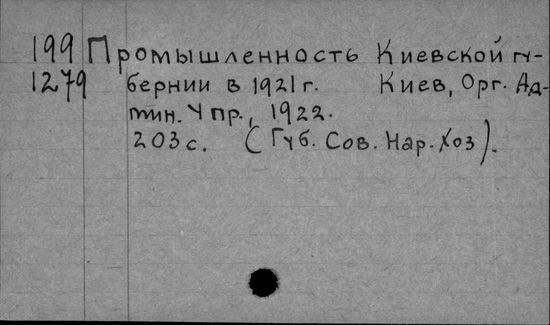 199 Промышленность Киевской гу-
1279 бернии в 1921 г. Киев, Орг. Ад-
мин. Упр., 1922.
203 с. (Губ. Сов. Нар. Хоз).